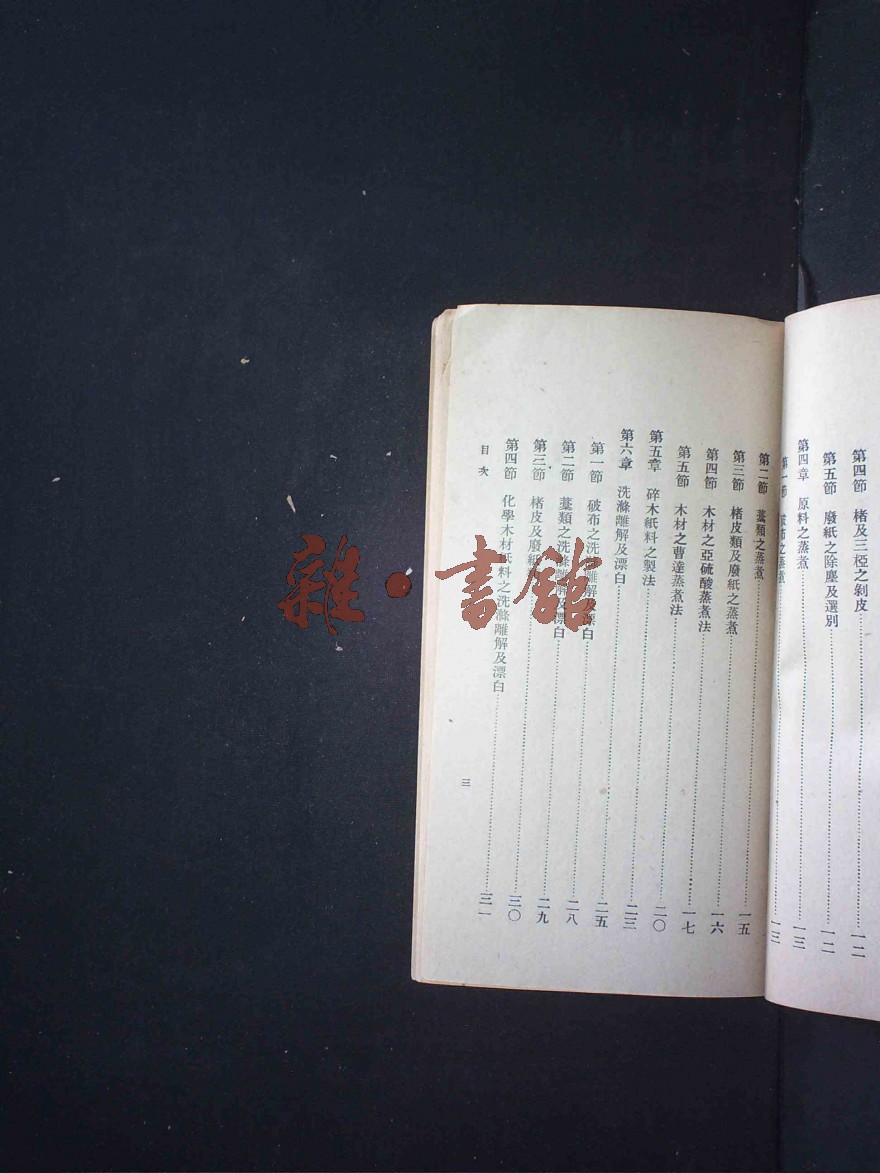 第四節　楮及三椏之剝皮……一二
第五節　廢紙之除塵及選別……一二
第四章　原料之蒸煮……一三
第一節　破布之蒸煮……一三
第二節　藁類之蒸煮……一五
第三節　楮皮類及廢紙之蒸煮……一六
第四節　木材之亞硫酸蒸煮法……一七
第五節　木材之曹達蒸煮法……二〇
第五章　碎木紙料之製法……二三
第六章　洗滌離解及漂白……二五
第一節　破布之洗滌離解及漂白……二八
第二節　藁類之洗滌離解及漂白……二九
第三節　楮皮及廢紙……三〇
第四節　化學木材紙料之洗滌離解及漂白……三一
目次
三
雜·書館